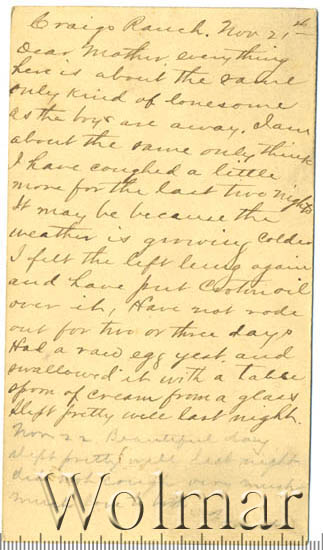 Craigs Ranch. Nov 21st
Dear Mother, everything
here is about the same
only kind of lonesome
as the boys are away. I am
about the same only think
I have coughed a little
more for the last two nights
It may be because the
weather is growing colder
I felt the left lung again
and have put oil
over it, Have not rode
out for two or three days
Had a raw egg yest. and
swallowed it with a table
spoon of cream from a glass
Slept pretty well last night.
Nov 22 Beautiful day
slept pretty well last night
did not cough very much
much love to
Wolmar